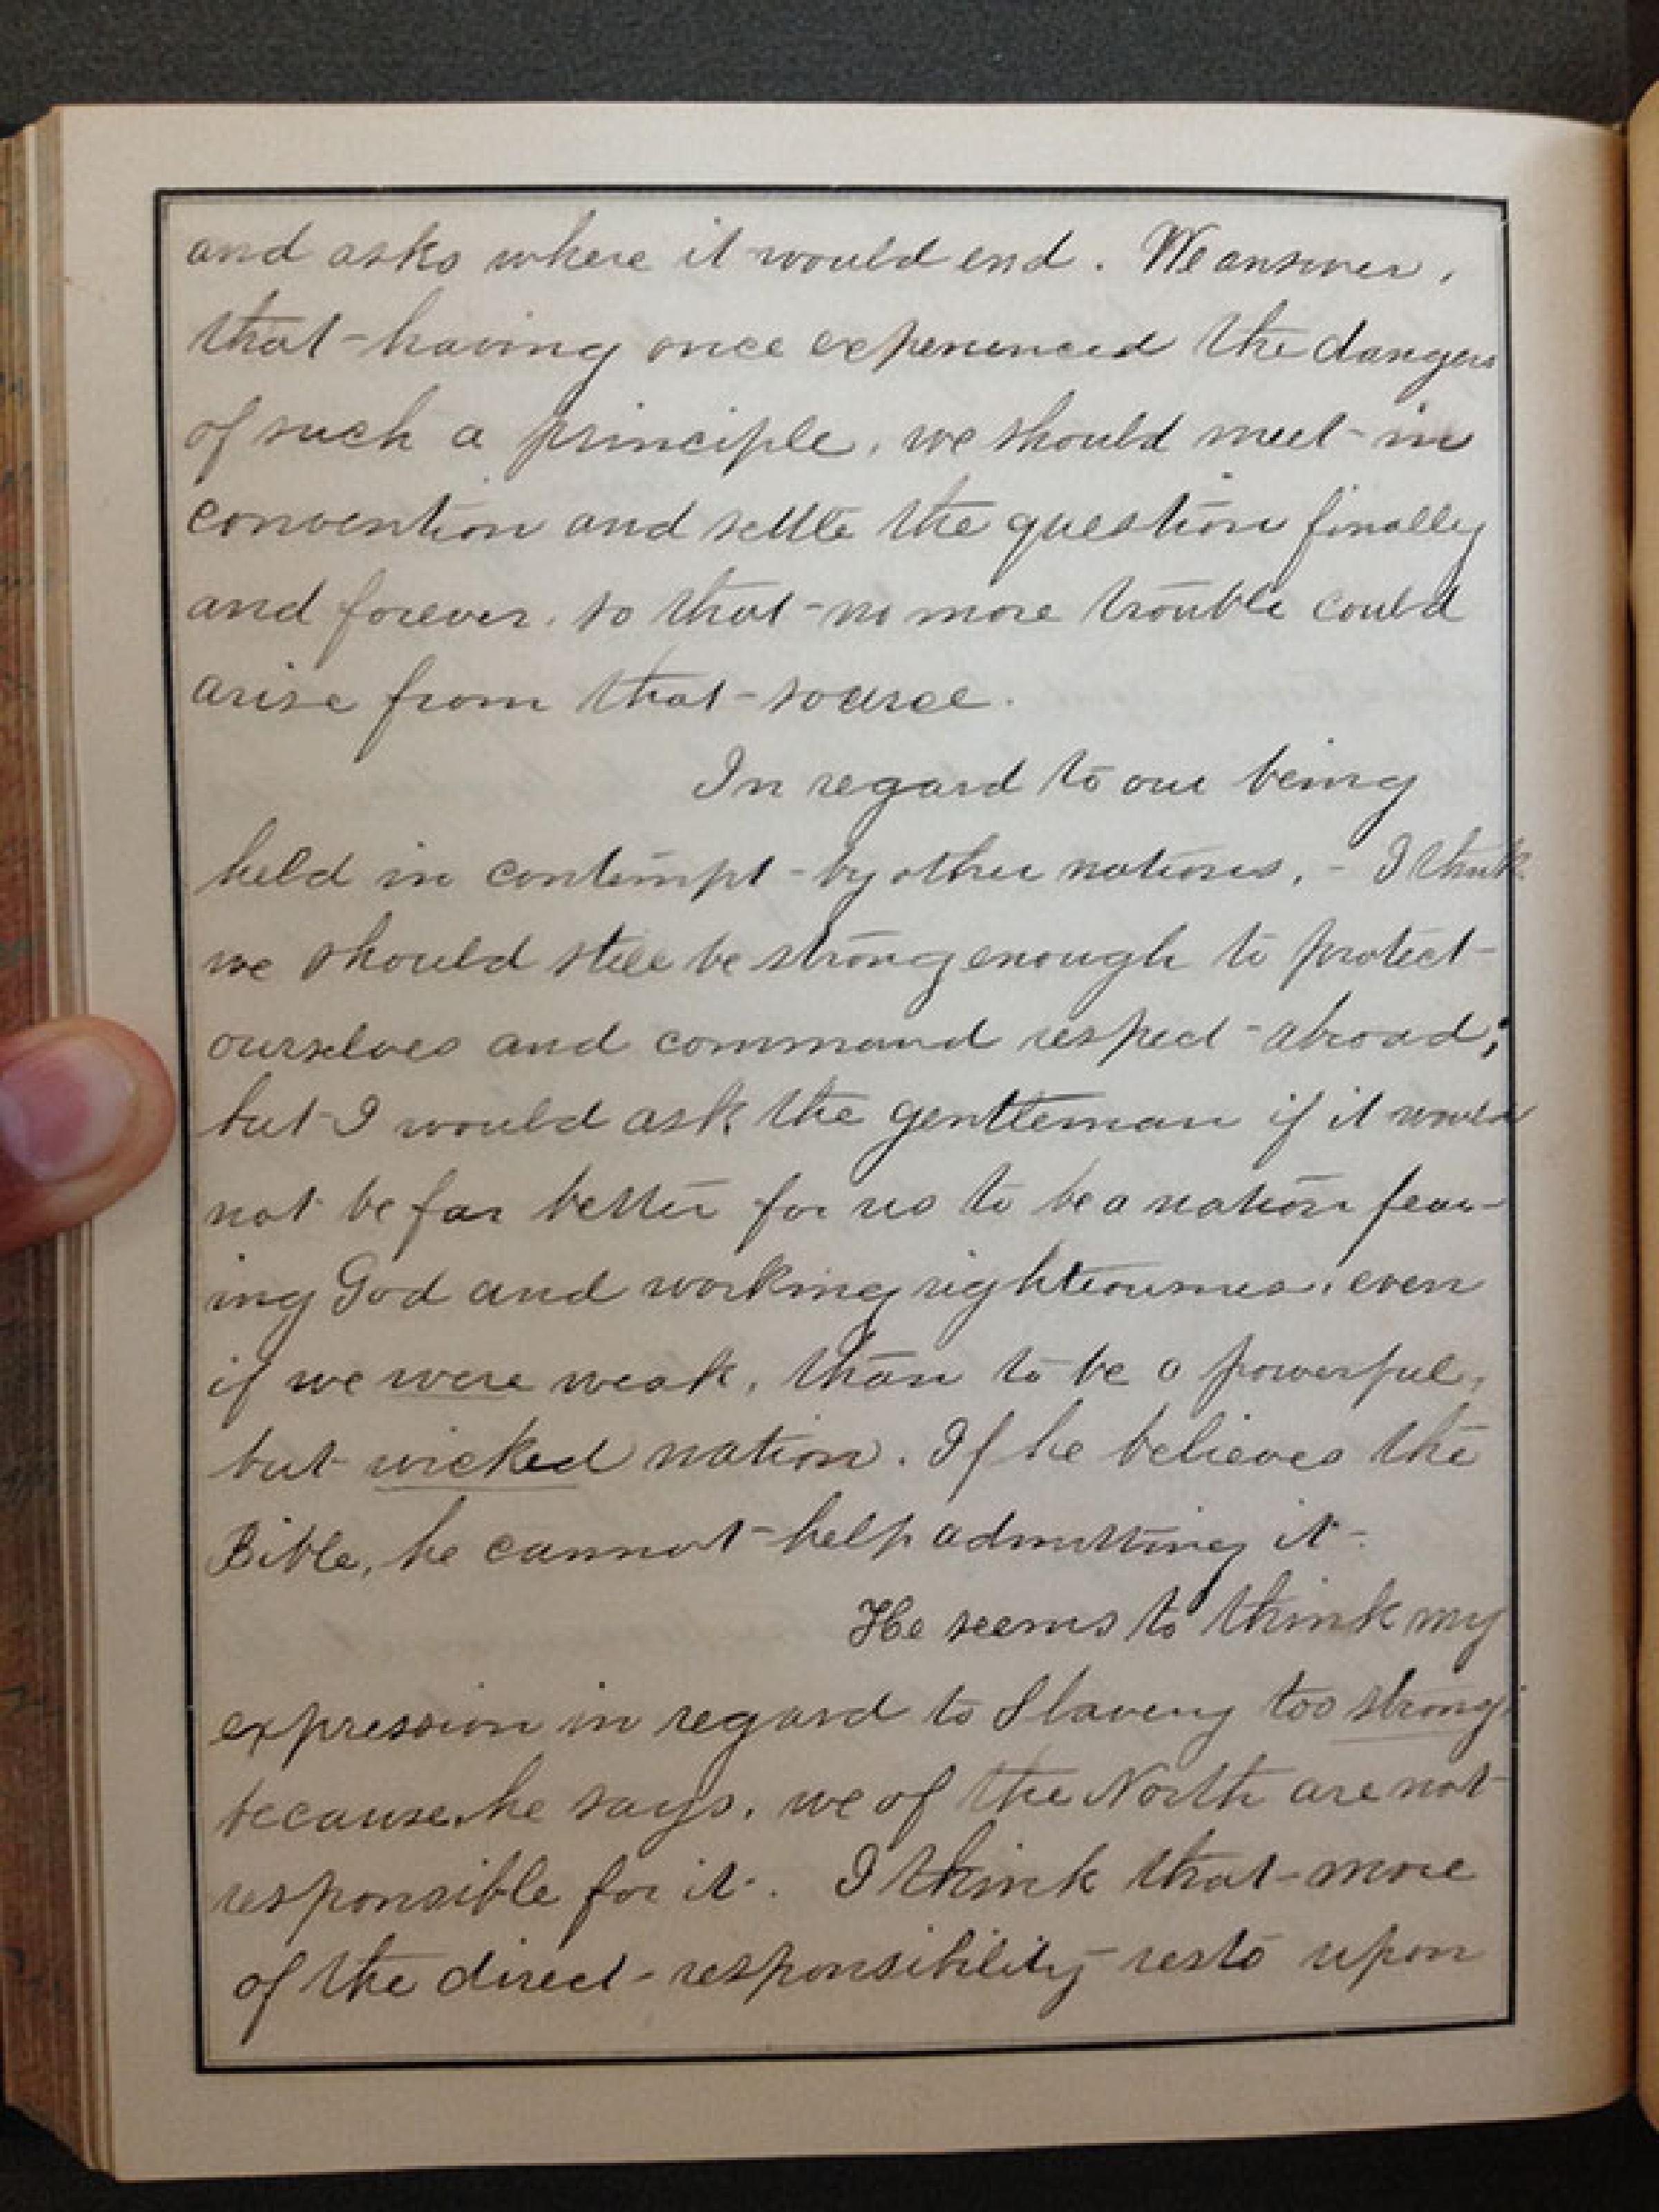 and asks where it would end. We answer,
that having once experienced the dangers
of such a principle, we should meet in
convention and settle the question finally
and forever, so that no more trouble could
arise from that source.
In regard to our being
held in contempt by other nations, - I think
we should still be strong enough to protect
ourselves and command respect abroad;
but I would ask the gentleman if it would
not be far better for us to be a nation fear-
ing God and working righteousness, even
if we were weak, than to be a powerful,
but wicked nation. If he believes the
Bible, he cannot help admitting it.
He seems to think my
expression in regard to Slavery too strong;
because, he says, we of the North are not
responsible for it. I think that more
of the direct responsibility rests upon